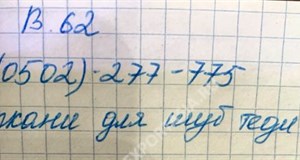 В. 62
(0502)·277-775
ткани для шуб теди